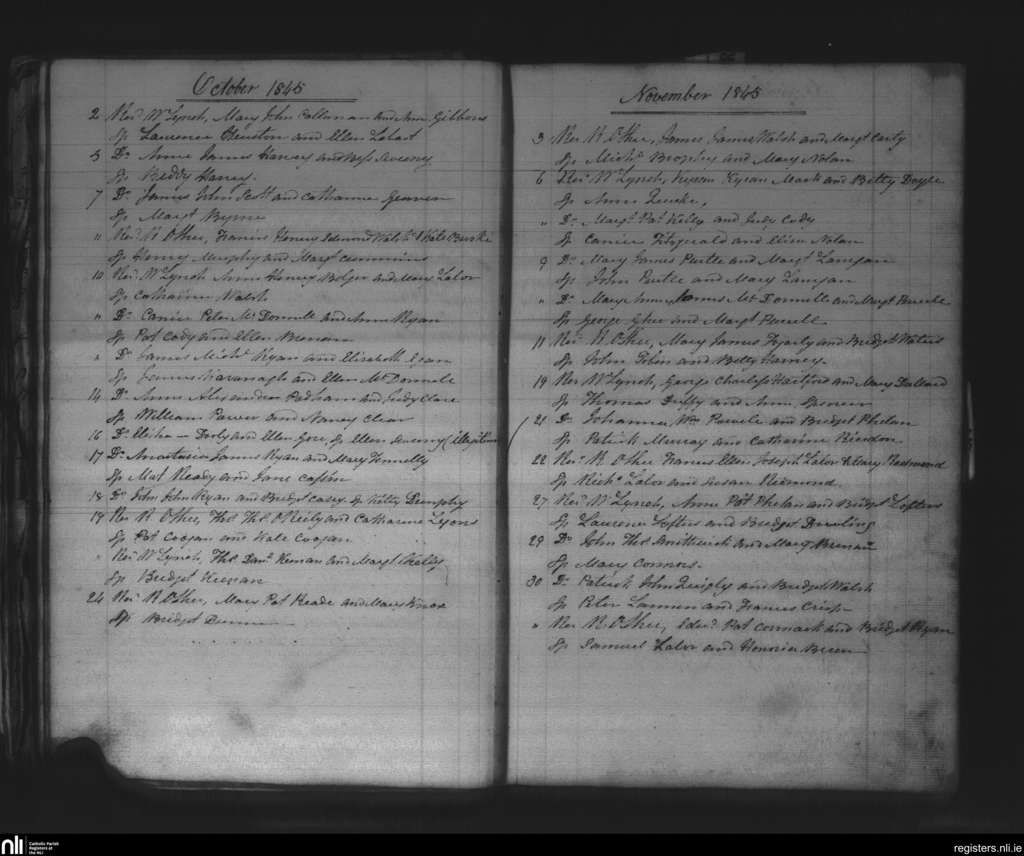 October 1845
2 Revd Mr Lynch, Mary John Callanan and Ann Gibbons
Sp Laurence Cheuston and Ellen
5 Do Anne James Harvey and Bess
Sp Biddy Harvey.
7 Do James John Scott and Catharine
Sp Margt Byrne
" Revd R OShee, Francis Henery Edmond Walsh & Kate Burke
Sp Henry Murphy and Margt Cummins
10 Revd Mr Lynch Anne Henry Bolger and Mary Lalor
Sp Catharine Walsh
" Do Peter Mc Donnell and Anne Ryan
Sp Pat Cody and Ellen Brenan
" Do James Michl Ryan and Elizabeth Egan
Sp James Kavanagh and Ellen McDonnell
14 Do Anne Alexander Padham and Judy Clare
Sp William Power and Nancy Clear
16 Do Eliza — Darly and Ellen Gore, Sp Ellen (illegitim
17 Do Anastasia James Ryan and Mary Fennelly
Sp Mat Ready and Jane
18 Do John John Ryan and Bridget Casey Sp Kitty Dunphy
19 Rev R OShee, Thos Thos OReily and Catharine Lyons
Sp Pat Coogan and Kate Coogan
" Revd Mr Lynch, Thos Danl Keenan and Margt Kelly
Sp Bridget Keenan
24 Revd R OShee, Mary Pat Reade and Mary Knox
Sp Bridget Dunne
November 1845
3 Rev R OShee, James James Walsh and Margt Carty
Sp Michl Brophy and Mary Nolan
6 Revd Mr Lynch, Kyran Mack and Betty Doyle
Sp Anne
" Do Margt Pat Kelly and Judy Cody
Sp Fitzgerald and Eliza Nolan
9 Do Mary James Purtle and Margt Langan
Sp John Purtle and Mary Langan
" Do Mary Anne James McDonnell and Margt
Sp George and Margt
11 Revd R OShee, Mary James Fogarty and Bridget Waters
Sp John Tobin and Betty
19 Rev Mr Lynch, George Charles Hartford and Mary Dullard
Sp Thomas Duffy and Ann
21 Do Johanna Wm and Bridget Phelan
Sp Patrick Murray and Catharine Riordon
22 Revd R OShee Francis Ellen Joseph Lalor & Mary Redmond
Sp Richd Lalor and Susan Redmond
27 Revd Mr Lynch, Anne Pat Phelan and Bridget Loftus
Sp Laurence Loftus and Bridget Dowling
29 Do John Thos Smithwick and Margt Brenan
Sp Mary Connors.
30 Do Patrick John Quigly and Bridget Walsh
Sp Peter Lannon and Frances Crisp
" Rev R OShee, Edwd Pat Cormack and Bridget Ryan
Sp Samuel Lalor and Honoria
nli
Catholic Parish
Registers at
the NLI
registers.nli.ie